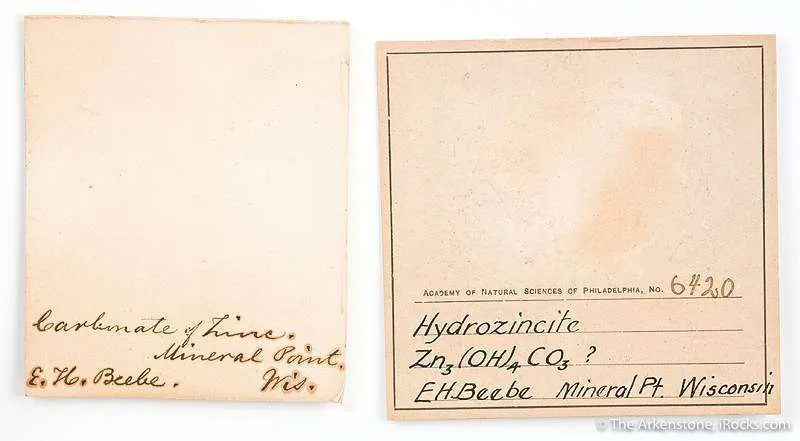 Carbonate of Zinc.
Mineral Point.
E. H. Beebe. Wis.
ACADEMY OF NATURAL SCIENCES OF PHILADELPHIA, NO. 6420
Hydrozincite
Zn₃(OH)₄CO₃ ?
E.H.Beebe Mineral Pt. Wisconsin
© The Arkenstone, iRocks.com